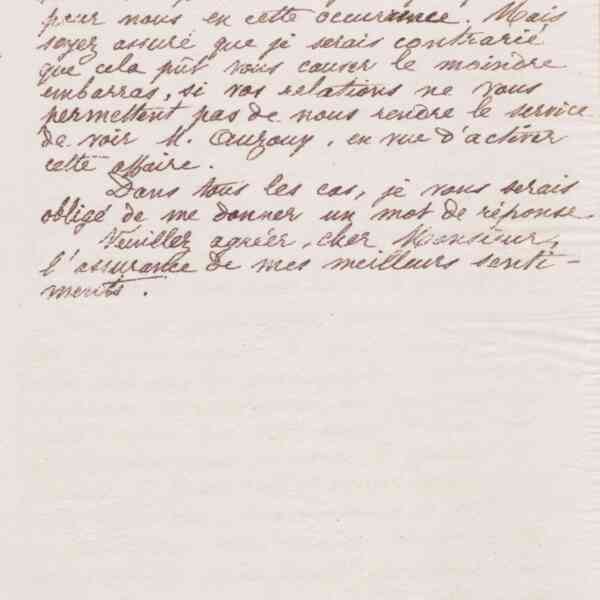 pour nous en cette occurrence. Mais
soyez assuré que je serais contrarié
que cela pût vous causer le moindre
embarras, si vos relations ne vous
permettent pas de nous rendre le service
de voir M. Auzouy, en vue d'activer
cette affaire.
Dans tous les cas, je vous serais
obligé de me donner un mot de réponse
Veuillez agréer, cher Monsieur,
l'assurance de mes meilleurs senti-
ments.